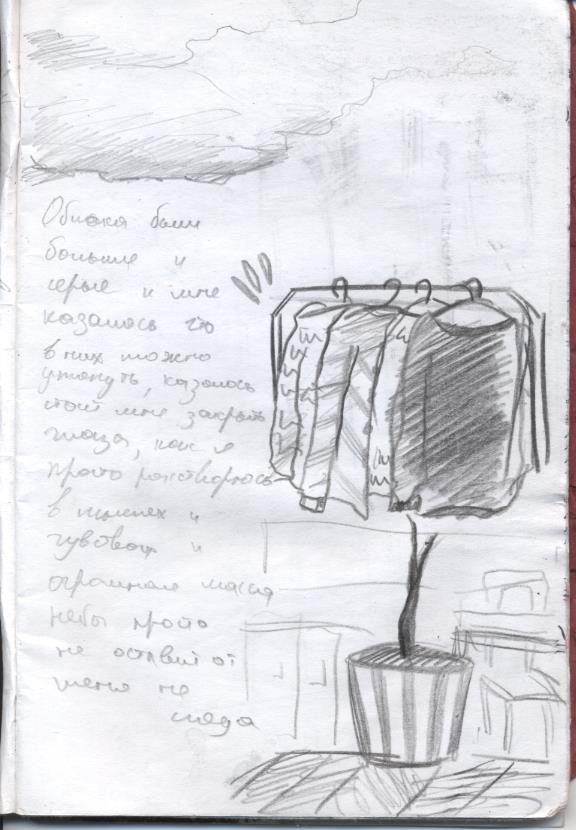 Облака были
большие и
серые и мне
казалось что
в них можно
утонуть, казалось
стоит мне закрыть
глаза, как я
просто растворюсь
в мыслях и
чувствах и
огромная масса
неба просто
не оставит от
меня не
следа